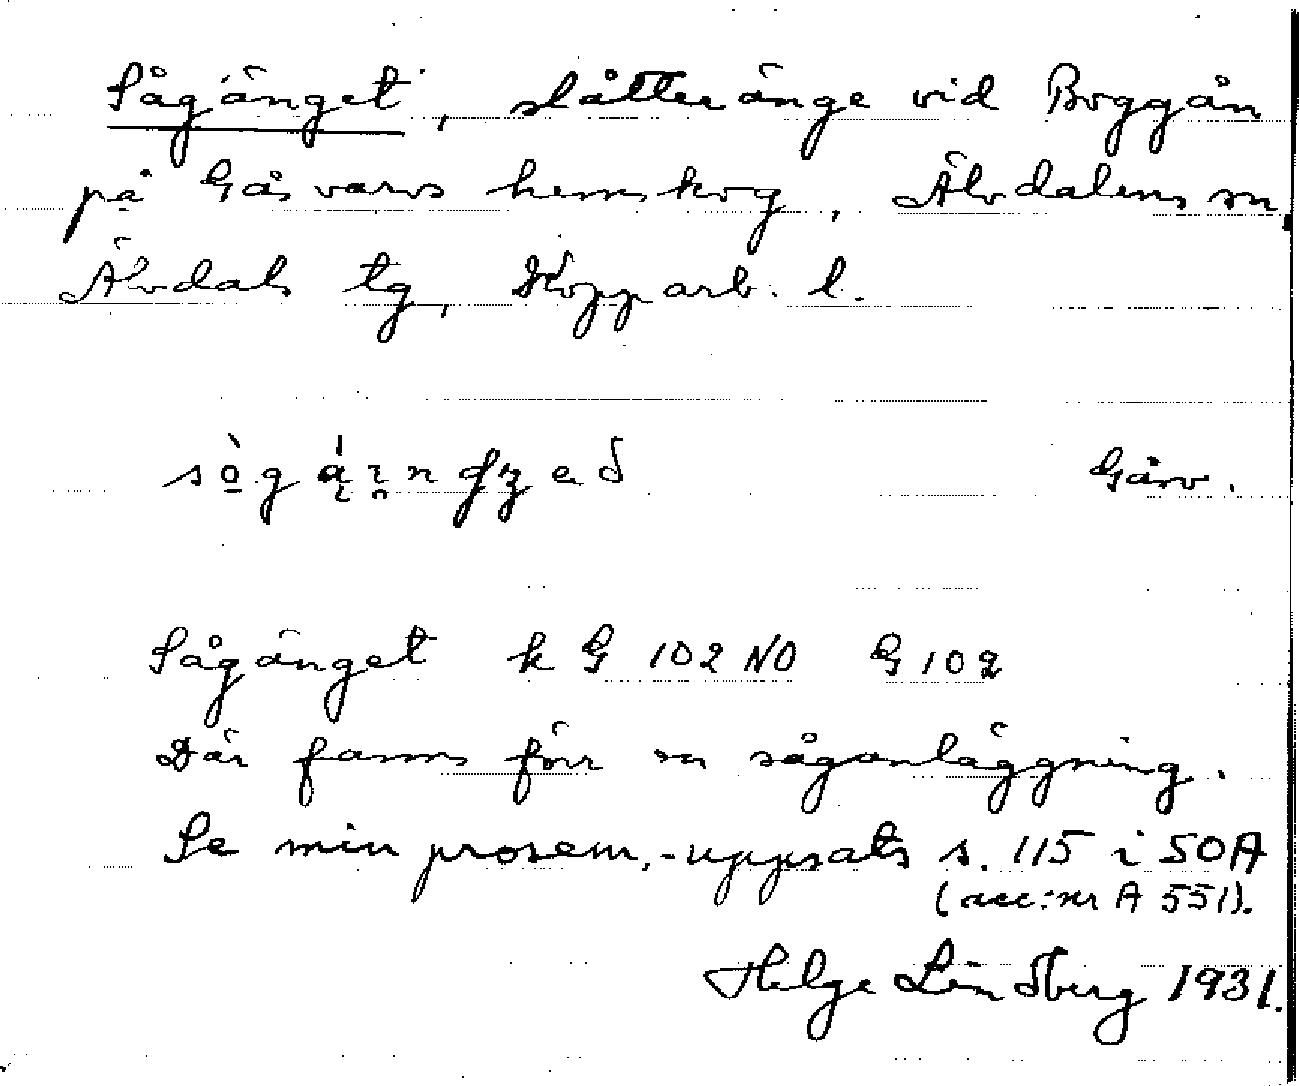 Sågänget, slåtteränge vid Boggån
på Gåsvarvs hemskog, Älvdalens sn,
Älvdals tg, Kopparb. l.
Gåsv.
Sågänget k G 102 NO G 102
Där fanns förr en såganläggning.
Se min prosem.-uppsats s. 115 i SOA
(acc:nr A 551).
Helge Lindberg 1931.